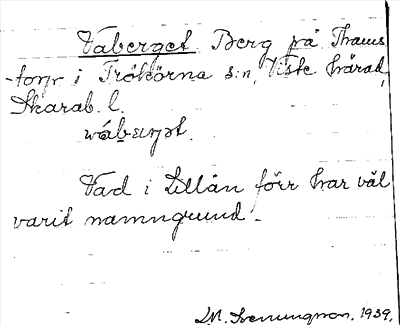 Vaberget Berg på Thams-
-torp i Trökörna s:n, Viste härad,
Skarab. l.
Vad i Lillån förr har väl
varit namngrund.
Svenungsson. 1939.